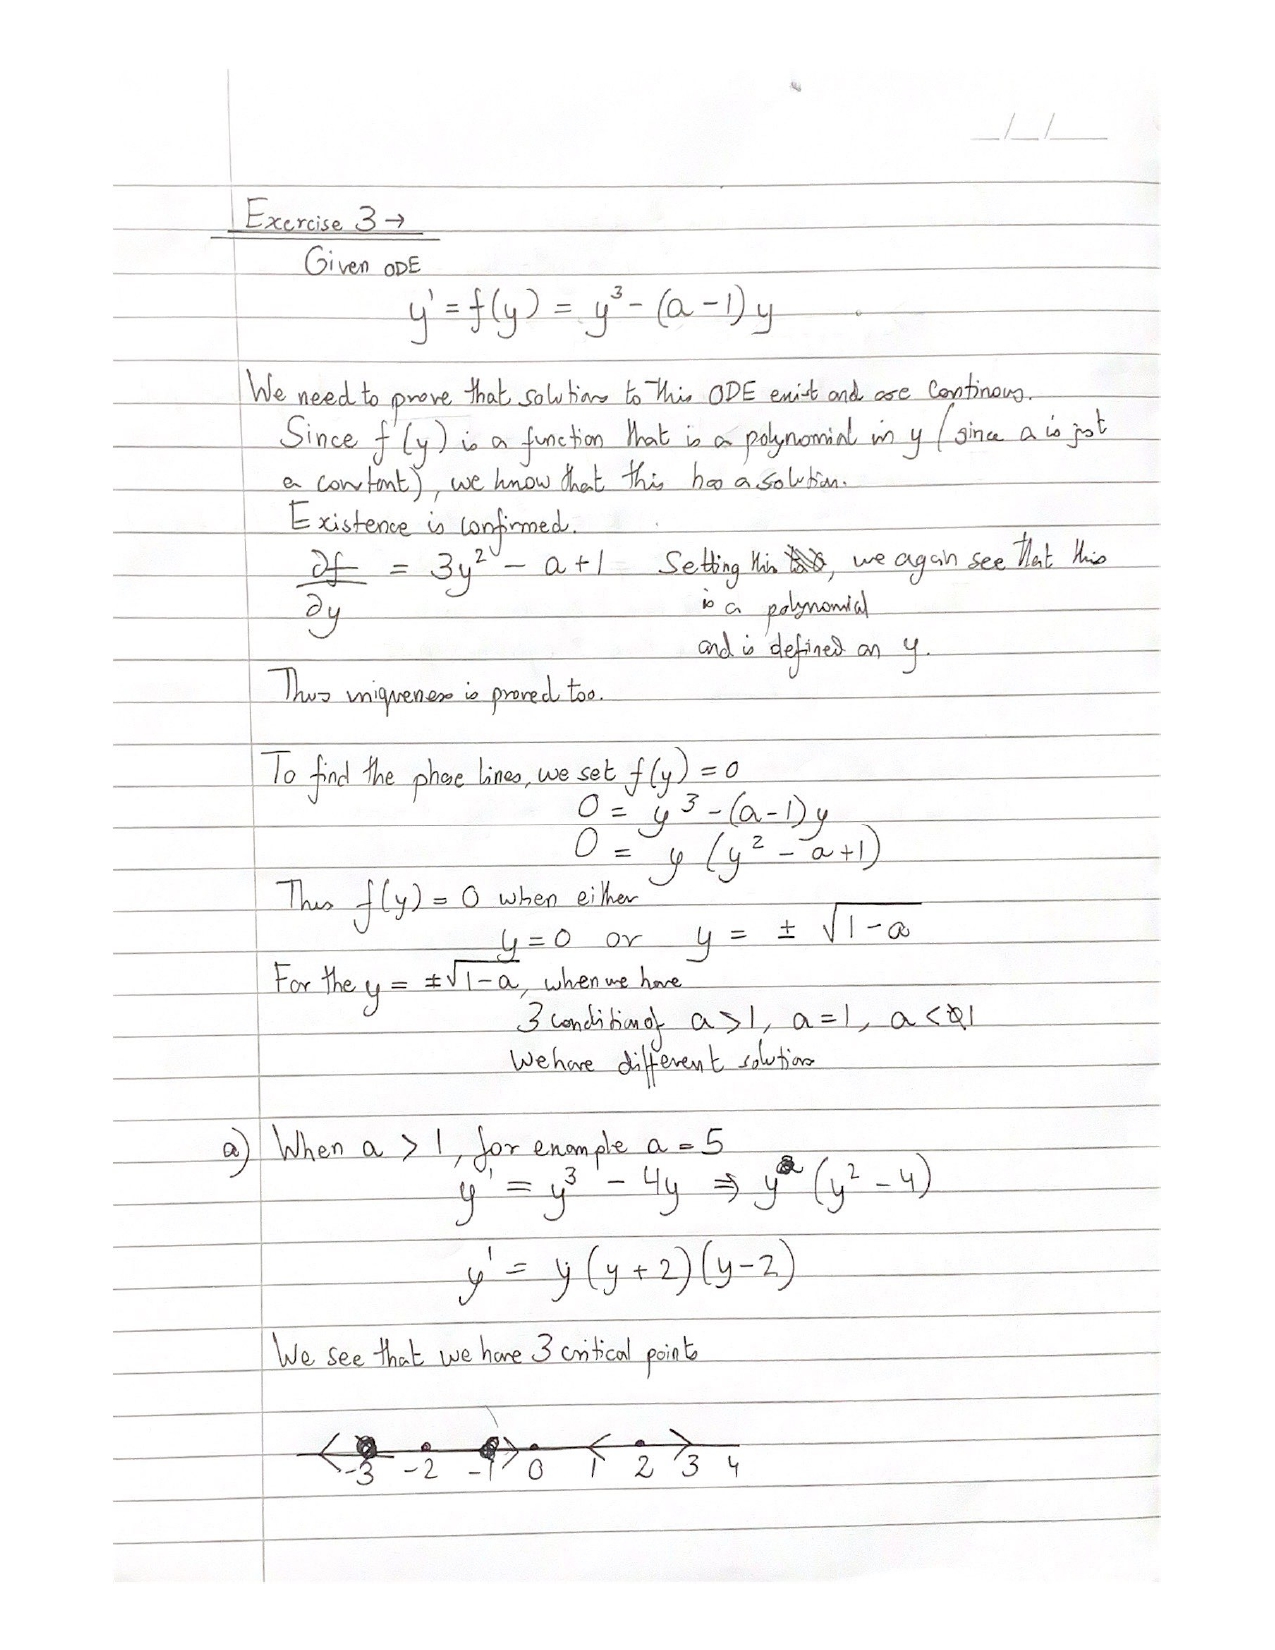 _/_/__
Exercise 3 →
Given ODE
y' = f(y) = y³ - (a-1) y
We need to prove that solutions to this ODE exist and are continous.
Since f(y) is a function that is a polynomial in y (since a is just
a constant), we know that this has a solution.
Existence is confirmed.
∂f/∂y = 3y² - a + 1 Setting this, we again see that this
is a polynomial
and is defined on y.
Thus uniqueness is proved too.
To find the phase lines, we set f(y) = 0
0 = y³ - (a-1) y
0 = y (y² - a + 1)
Thus f(y) = 0 when either
y = 0 or y = ± √1-a
For the y = ±√1-a, when we have
3 condition of a > 1, a = 1, a < 1
We have different solutions
a) When a > 1, for example a = 5
y' = y³ - 4y ⇒ y (y² - 4)
y' = y (y + 2) (y - 2)
We see that we have 3 critical points
-3 -2 -1 0 1 2 3 4